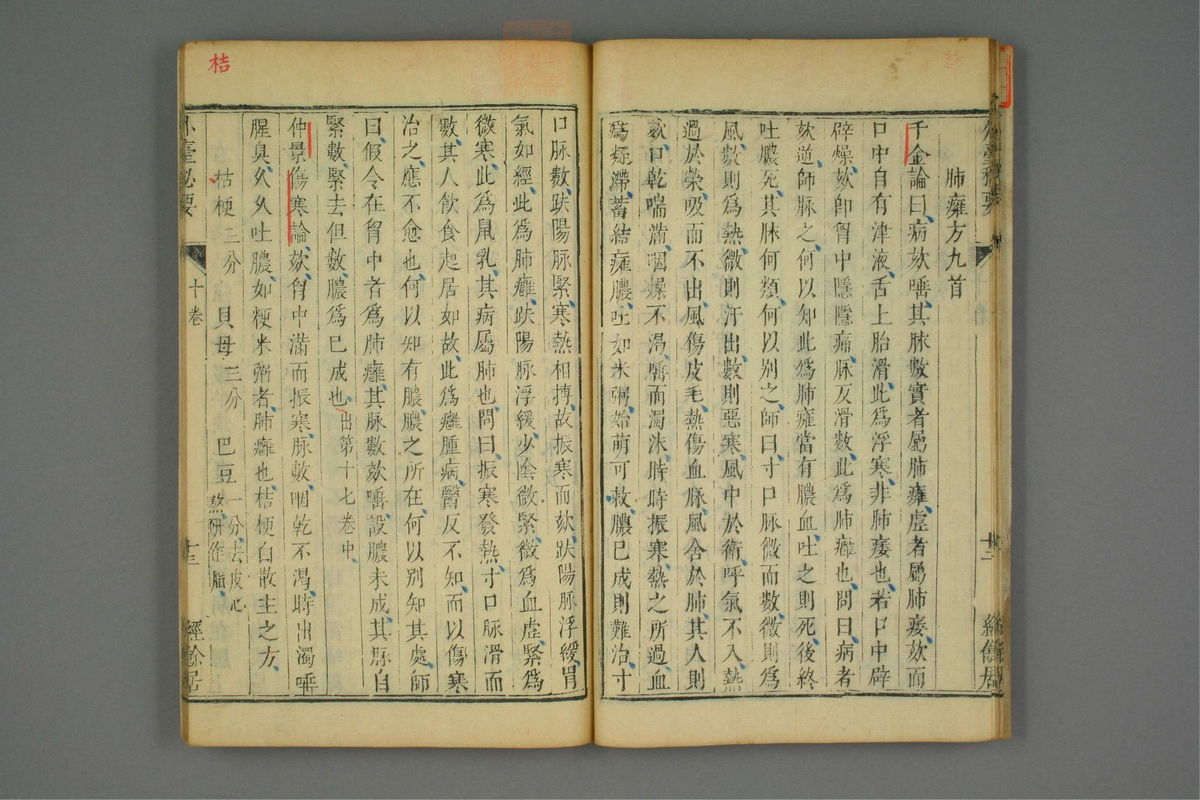 肺癰方九首
千金論曰病欬唾其脉數實者屬肺癰虛者屬肺痿欬而
口中自有津液舌上胎滑此爲浮寒非肺痿也若口中辟
辟燥欬卽胷中隱隱痛脉反滑數此爲肺癰也問曰病者
欬逆師脉之何以知此爲肺癰當有膿血吐之則死後終
吐膿死其脉何類何以别之師曰寸口脉微而數微則爲
風數則爲熱微則汗出數則惡寒風中於衛呼氣不入熱
過於榮吸而不出風傷皮毛熱傷血脉風舍於肺其人則
欬口乾喘滿咽燥不渴唾而濁沫時時振寒熱之所過血
爲凝滯蓄結癰膿吐如米粥始萌可救膿已成則難治寸
口脉數趺陽脉緊寒熱相搏故振寒而欬趺陽脉浮緩胃
氣如經此爲肺癰趺陽脉浮緩少陰微緊微爲血虛緊爲
微寒此爲鼠乳其病屬肺也問曰振寒發熱寸口脉滑而
數其人飲食起居如故此爲癰腫病醫反不知而以傷寒
治之應不愈也何以知有膿膿之所在何以别知其處師
曰假令在胷中者爲肺癰其脉數欬唾設膿未成其脉自
緊數緊去但數膿爲已成也出第十七卷中
仲景傷寒論欬胷中滿而振寒脉數咽乾不渴時出濁唾
腥臭久久吐膿如粳米粥者肺癰也桔梗白散主之方
桔梗三分 貝母三分 巴豆一分去皮心熬研作脂
外臺秘要 十卷 十三 經餘居
桔